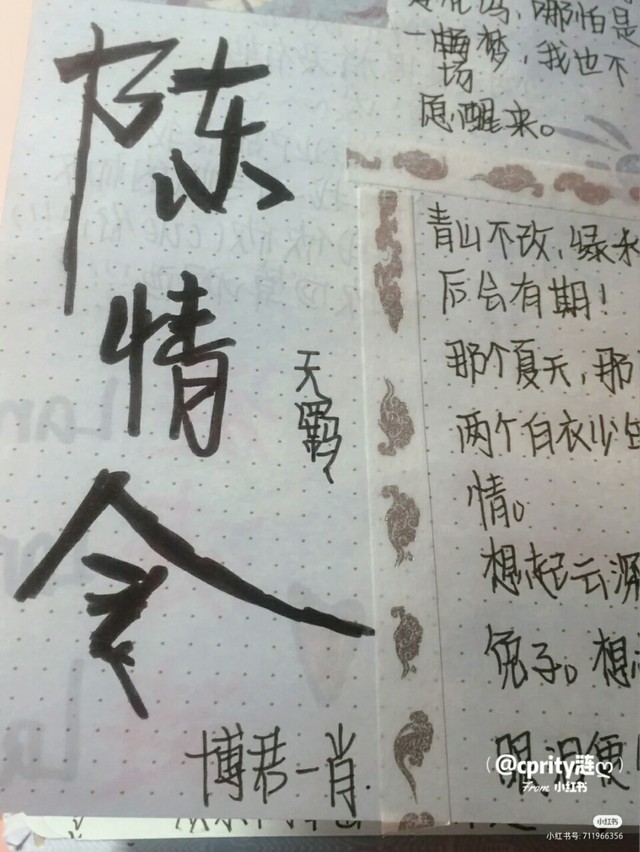 陈情令
博君一肖
哪怕是
一场梦，我也不
愿醒来。
青山不改，绿水
后会有期！
那个夏天，那
两个白衣少年
情。
想起云深
兔子。想
眼泪便
@cprity涟
From 小红书
小红书
小红书号: 711966356